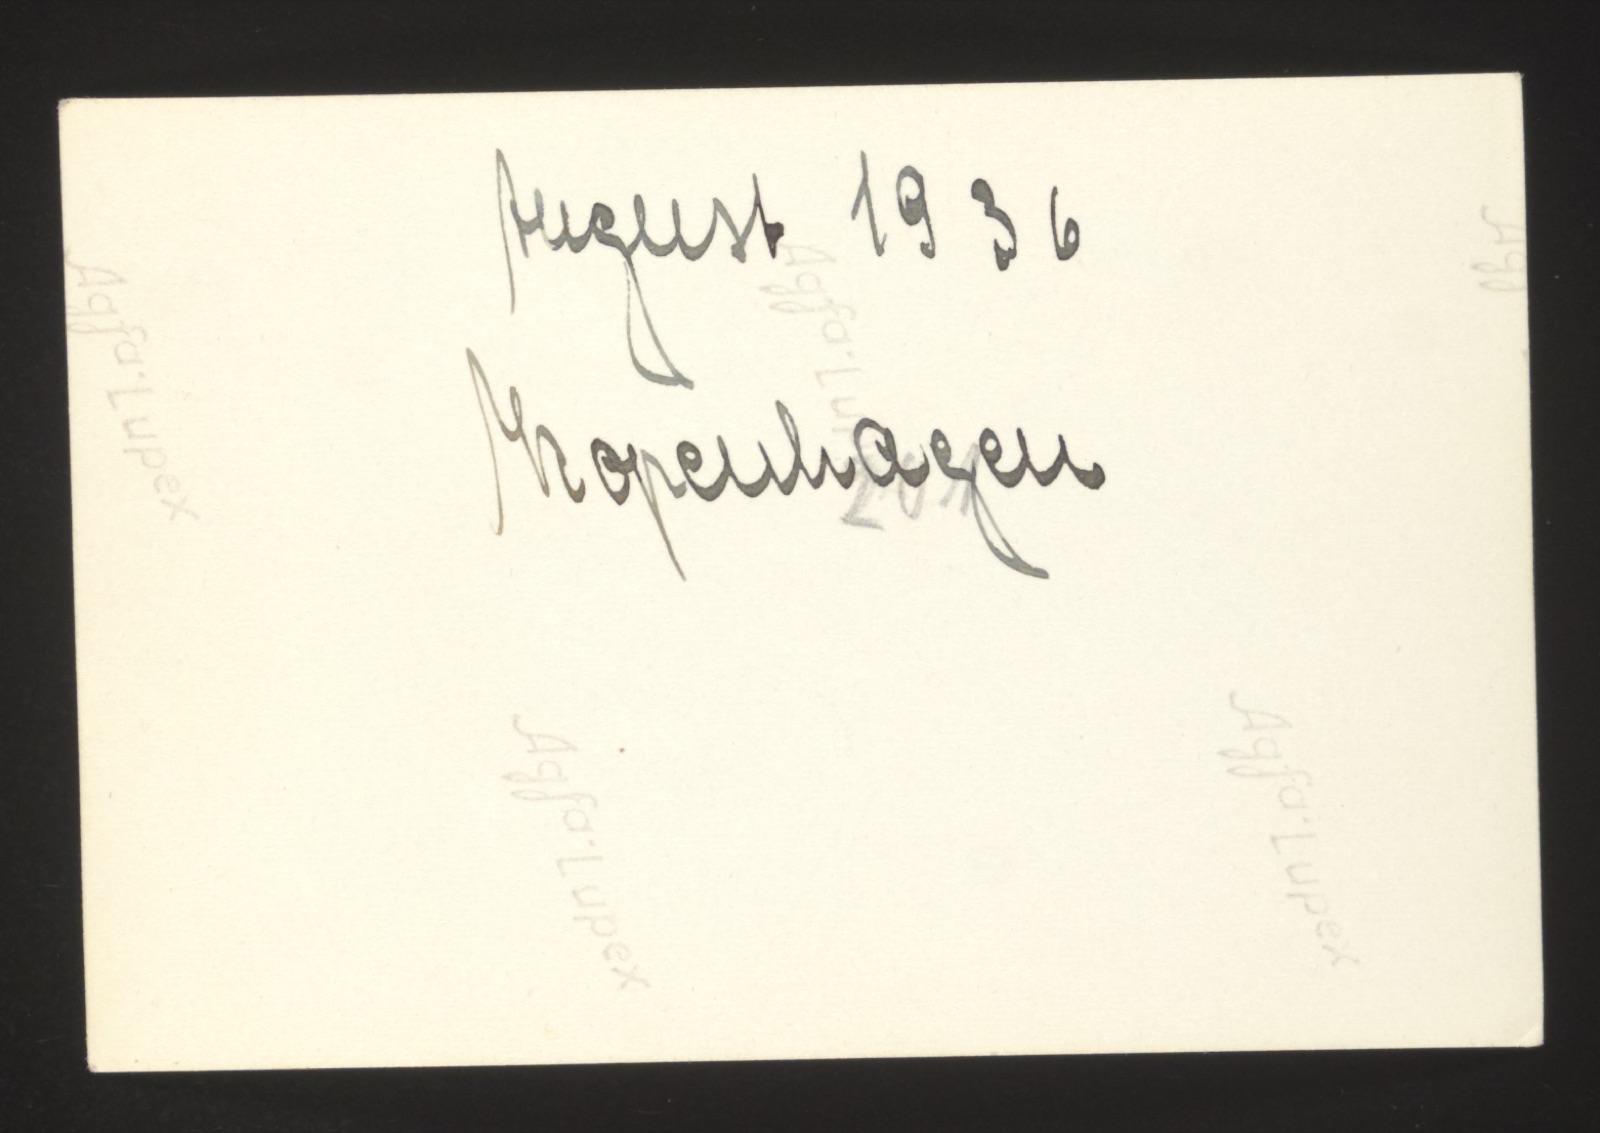 August 1936
Kopenhagen
Agfa-Lupex
Agfa-Lupex
Agf
Agfa-Lupex
Agfa-Lupex